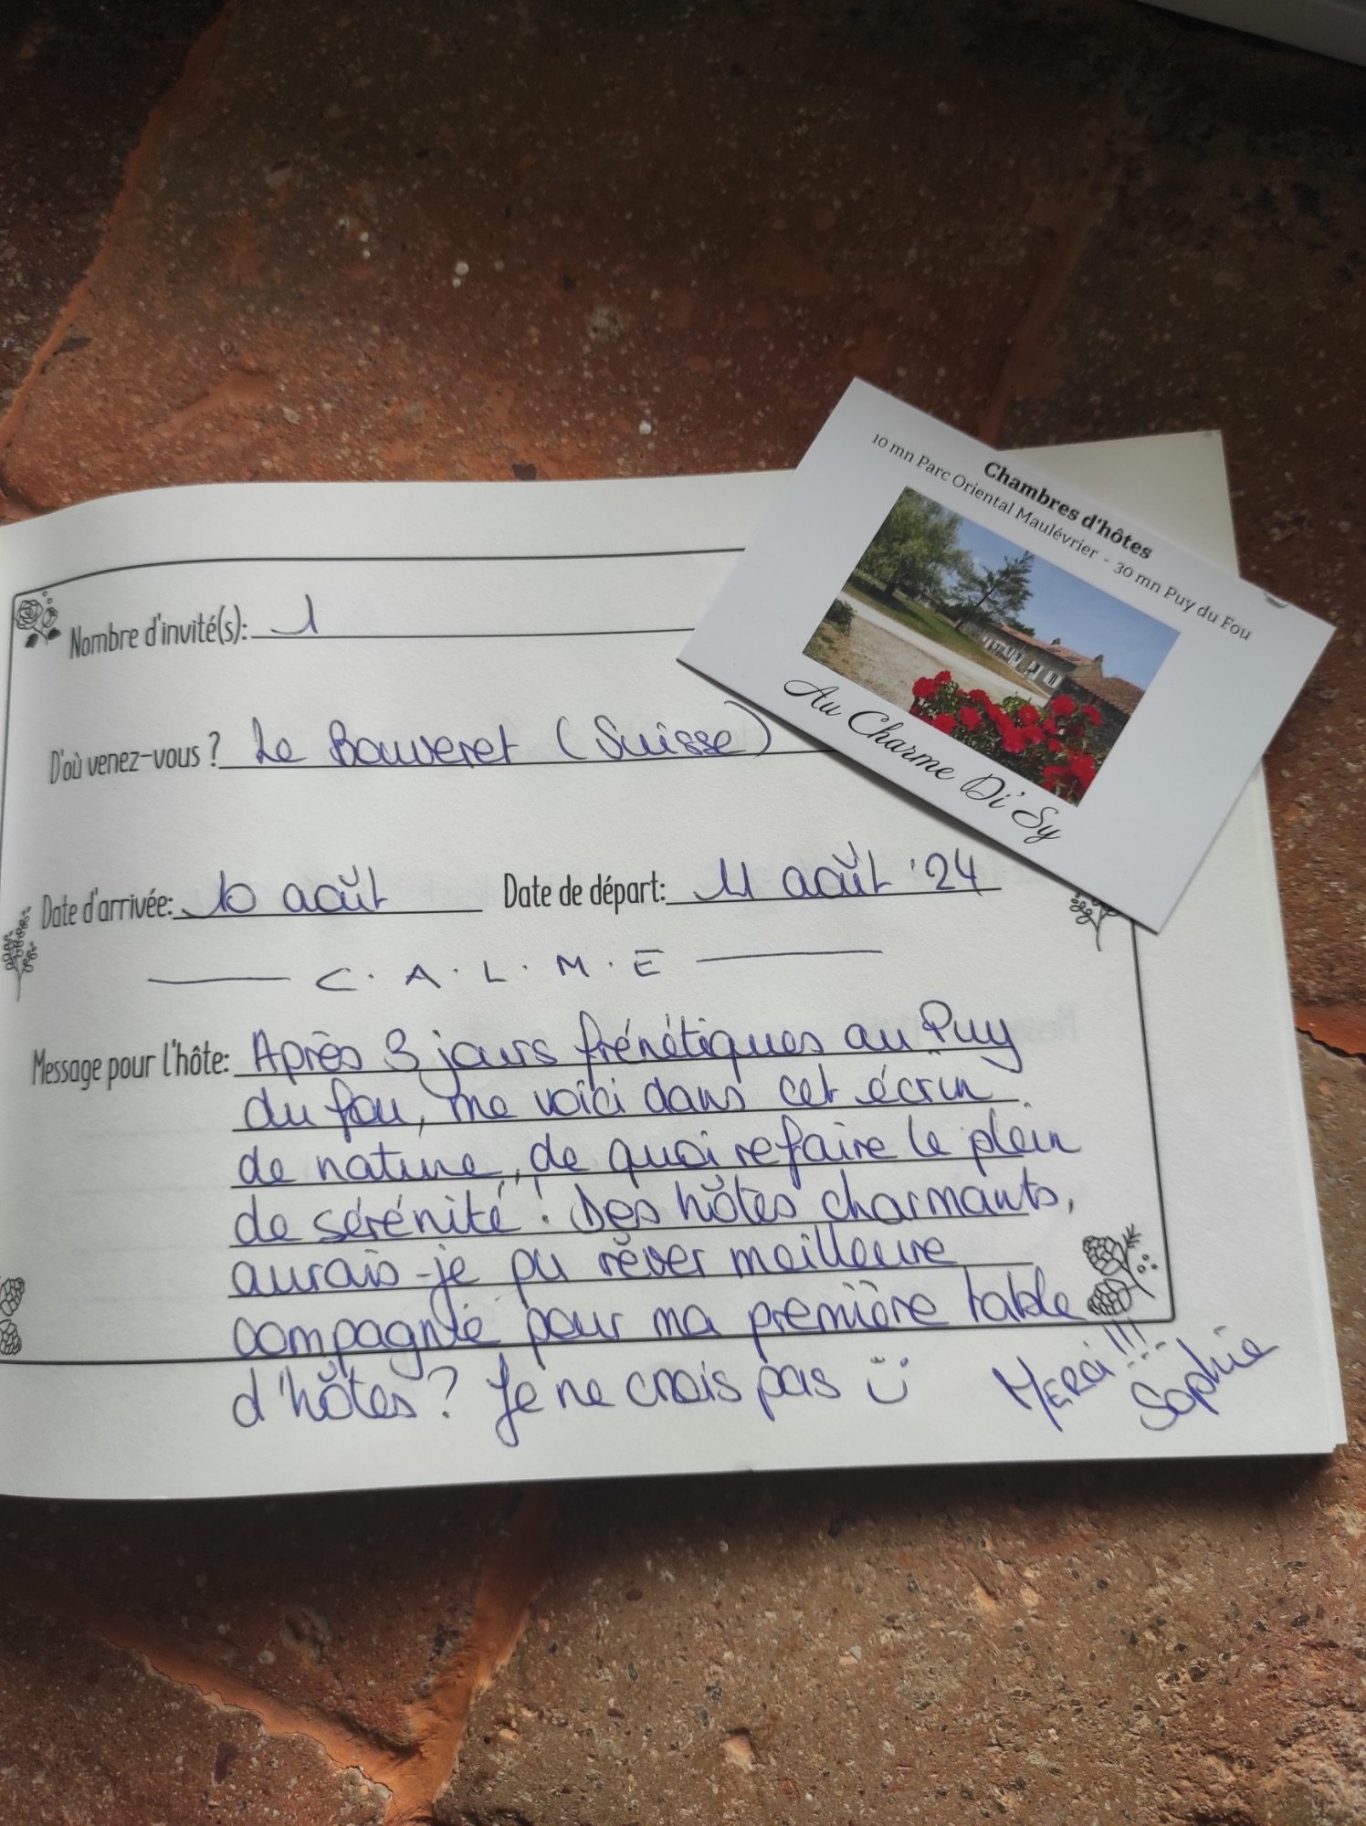 Chambres d'hôtes
10 mn Parc Oriental Maulévrier - 30 mn Puy du Fou
Au Charme Di' Sy
Nombre d'invité(s): 1
D'où venez-vous ? Le Bouveret (Suisse)
Date d'arrivée: 10 août Date de départ: 11 août '24
C. A. L. M. E
Message pour l'hôte: Après 3 jours frénétiques au Puy
du fou, me voici dans cet écrin
de nature, de quoi refaire le plein
de sérénité ! Des hôtes charmants,
aurais-je pu rêver meilleure
compagnie pour ma première table
d'hôtes ? Je ne crois pas
Merci !!!
Sophie